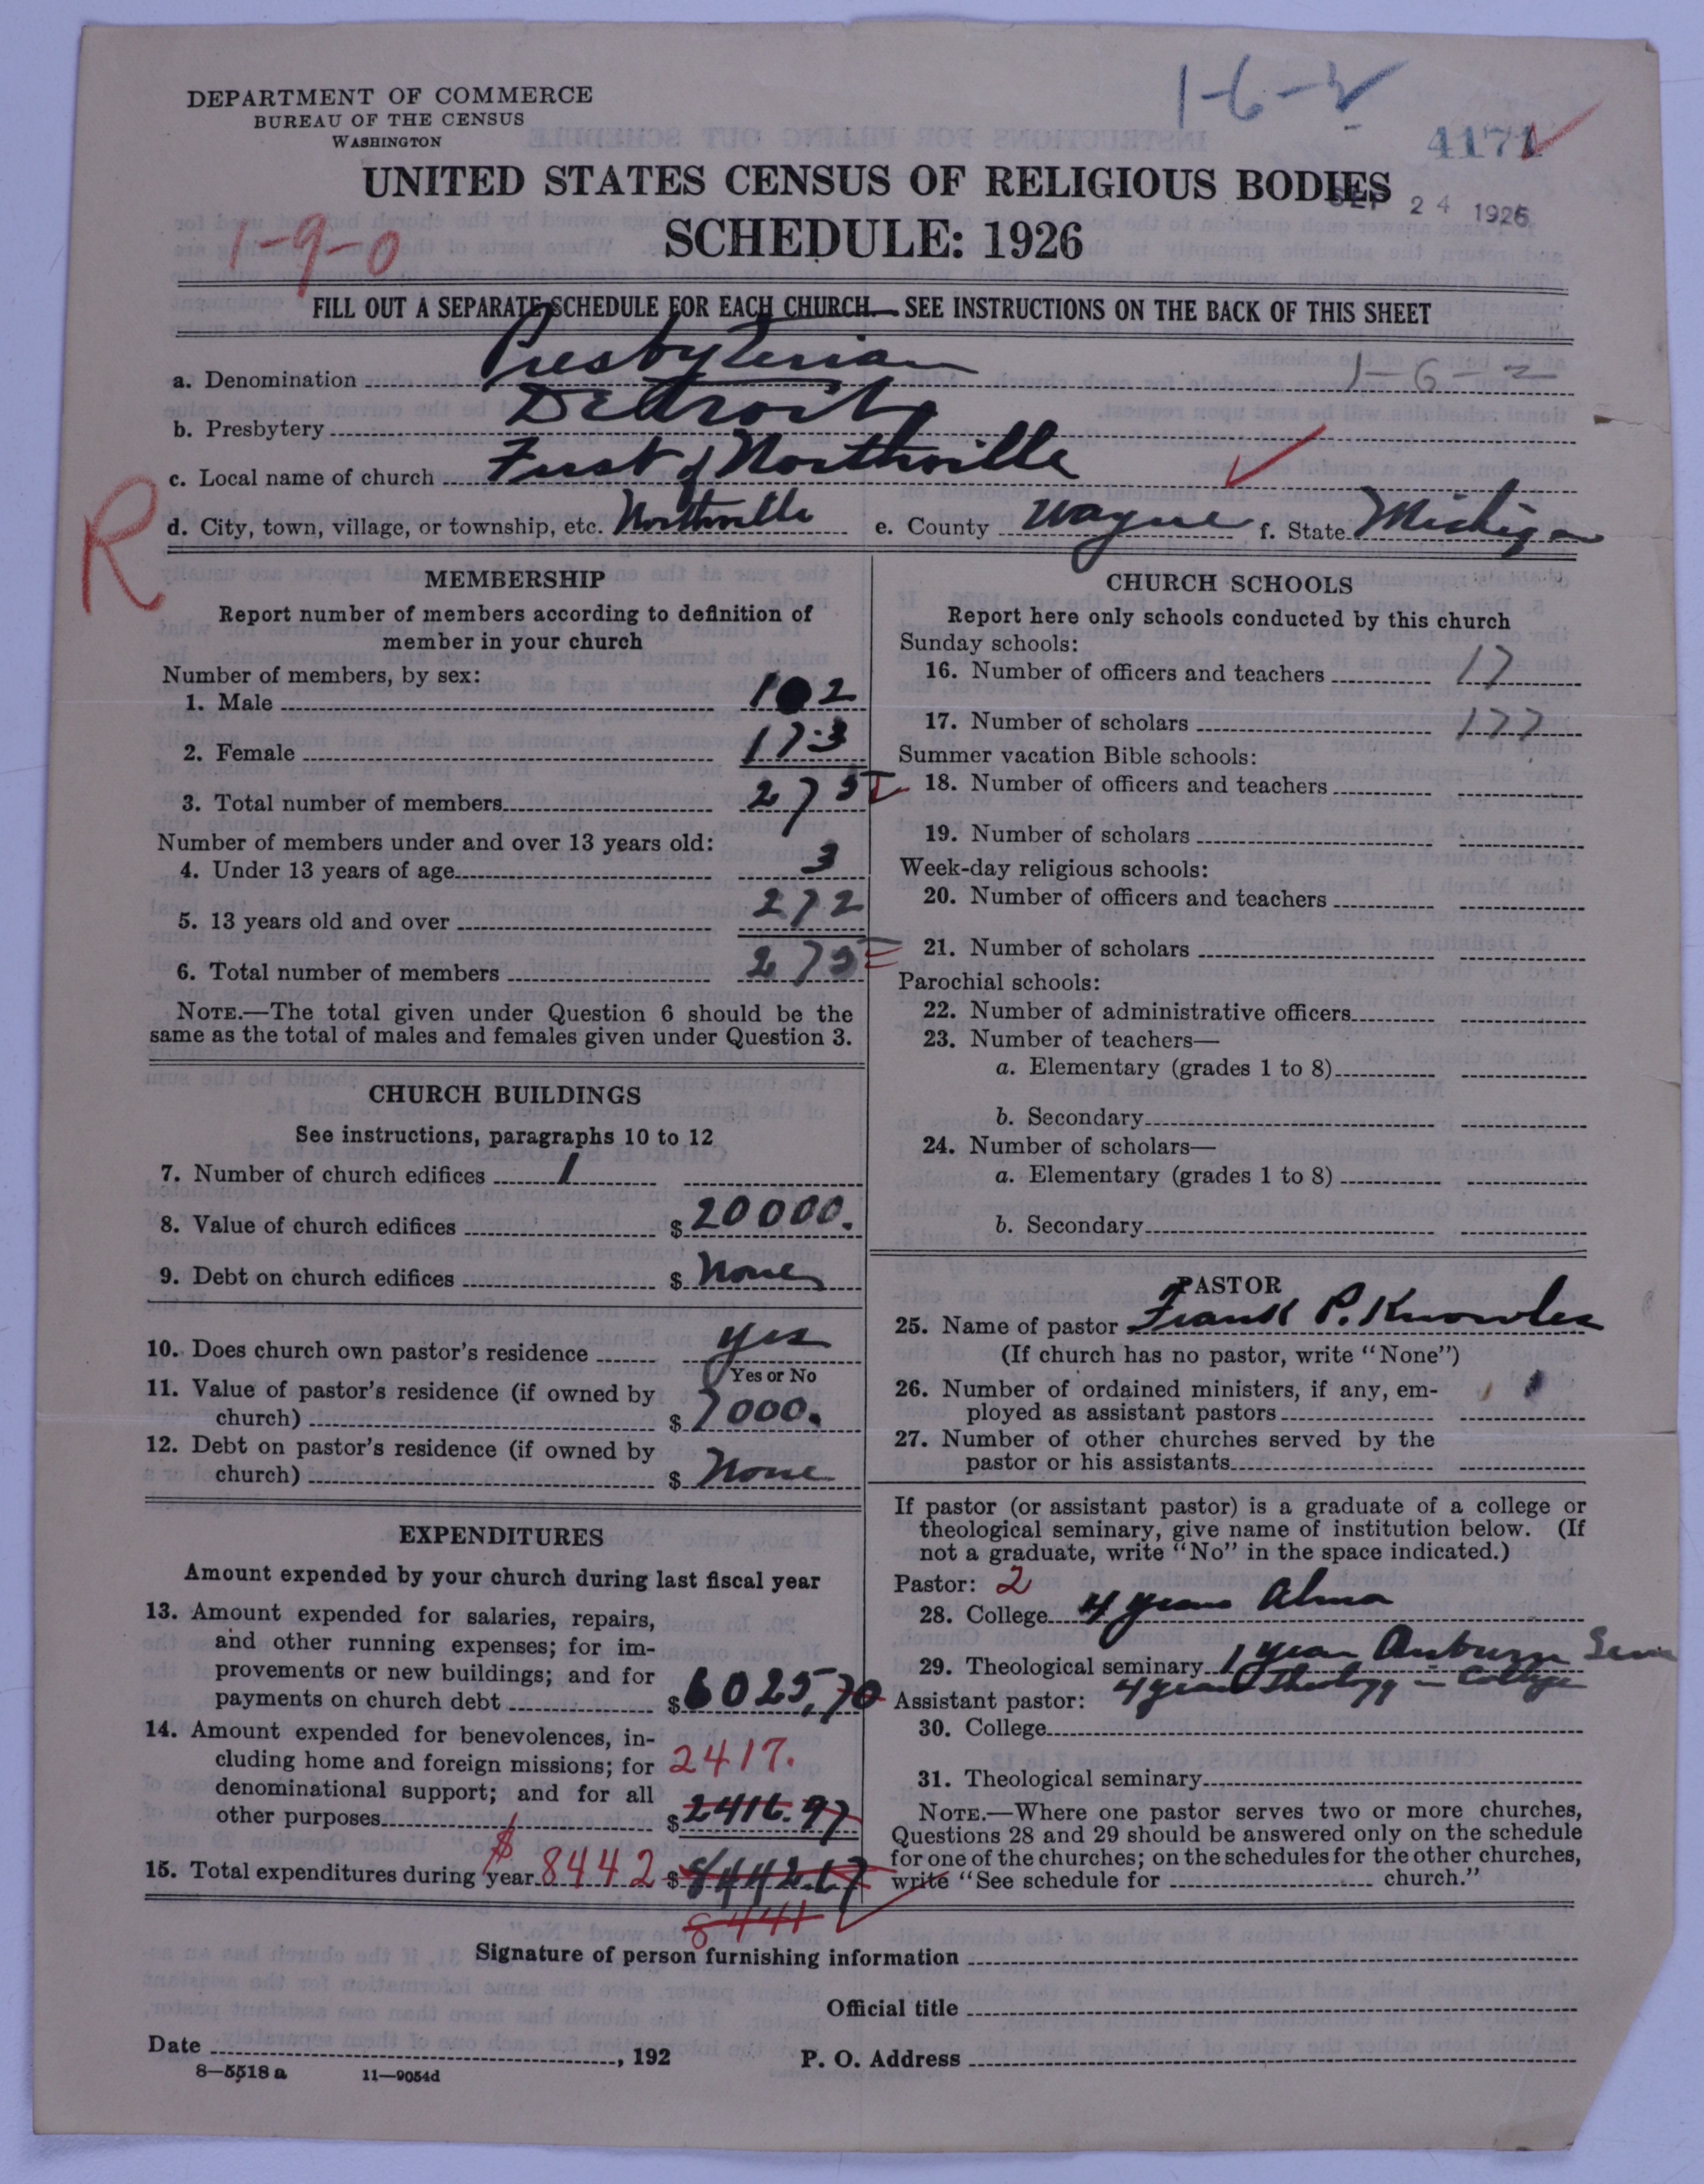 1-6-2
4171
DEPARTMENT OF COMMERCE
BUREAU OF THE CENSUS
WASHINGTON
UNITED STATES CENSUS OF RELIGIOUS BODIES
SEP 24 1926
SCHEDULE: 1926
1-9-0
FILL OUT A SEPARATE SCHEDULE FOR EACH CHURCH.—SEE INSTRUCTIONS ON THE BACK OF THIS SHEET
a. Denomination Presbyterian 1-6-2
b. Presbytery Detroit
c. Local name of church First of Northville
R
d. City, town, village, or township, etc. Northville e. County Wayne f. State Michigan
MEMBERSHIP
Report number of members according to definition of
member in your church
Number of members, by sex:
1. Male 102
2. Female 173
3. Total number of members 275
Number of members under and over 13 years old:
4. Under 13 years of age 3
5. 13 years old and over 272
6. Total number of members 275
NOTE.—The total given under Question 6 should be the
same as the total of males and females given under Question 3.
CHURCH BUILDINGS
See instructions, paragraphs 10 to 12
7. Number of church edifices 1
8. Value of church edifices $ 20000.
9. Debt on church edifices $ None
10. Does church own pastor's residence yes
Yes or No
11. Value of pastor's residence (if owned by
church) $ 7000.
12. Debt on pastor's residence (if owned by
church) $ None
EXPENDITURES
Amount expended by your church during last fiscal year
13. Amount expended for salaries, repairs,
and other running expenses; for im-
provements or new buildings; and for
payments on church debt $ 6025.70
14. Amount expended for benevolences, in-
cluding home and foreign missions; for 2417.
denominational support; and for all
other purposes $ 2416.97
15. Total expenditures during year $ 8442 $ 8442.67
8441
CHURCH SCHOOLS
Report here only schools conducted by this church
Sunday schools:
16. Number of officers and teachers 17
17. Number of scholars 177
Summer vacation Bible schools:
18. Number of officers and teachers
19. Number of scholars
Week-day religious schools:
20. Number of officers and teachers
21. Number of scholars
Parochial schools:
22. Number of administrative officers
23. Number of teachers—
a. Elementary (grades 1 to 8)
b. Secondary
24. Number of scholars—
a. Elementary (grades 1 to 8)
b. Secondary
PASTOR
25. Name of pastor Frank P. Knowles
(If church has no pastor, write "None")
26. Number of ordained ministers, if any, em-
ployed as assistant pastors
27. Number of other churches served by the
pastor or his assistants
If pastor (or assistant pastor) is a graduate of a college or
theological seminary, give name of institution below. (If
not a graduate, write "No" in the space indicated.)
Pastor: 2
28. College 4 years Alma
29. Theological seminary 1 year Auburn Sem
4 years Theology in College
Assistant pastor:
30. College
31. Theological seminary
NOTE.—Where one pastor serves two or more churches,
Questions 28 and 29 should be answered only on the schedule
for one of the churches; on the schedules for the other churches,
write "See schedule for church."
Signature of person furnishing information
Official title
Date , 192
P. O. Address
8—5518 a 11—9054d